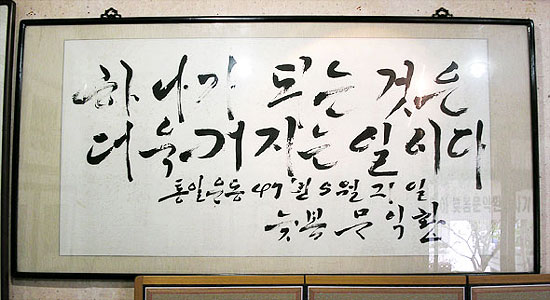 하나가 되는 것은
더욱 커지는 일이다
통일운동 47년 5월 일
늦봄 문익환
늦봄문익환